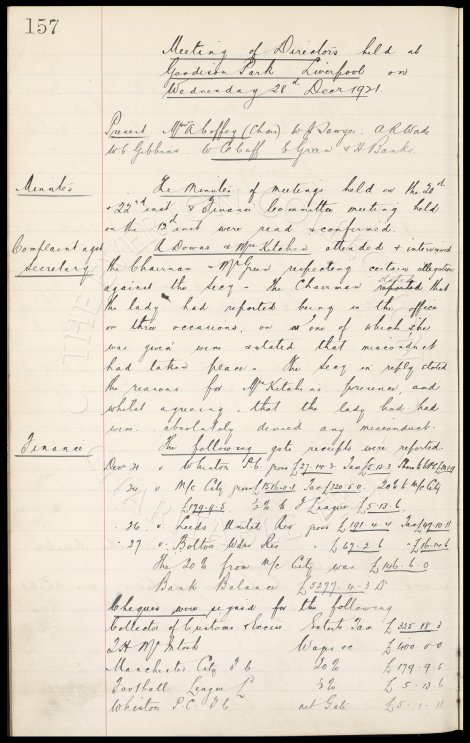 157
Meeting of Directors held at
Goodison Park Liverpool on
Wednesday 28th Decr 1921.
Present Messrs A Coffey (Chair) W J Sawyer. A R Wade
W C Gibbins W C Cuff E Green & H Banks.
Minutes
The Minutes of meetings held on the 20th
& 22nd inst & Finance Committee meeting held
on the 13th inst were read & confirmed.
Complaint agst
Secretary
A Downs & Mrs Kitchen attended & interviewed
the Chairman & Mr Green respecting certain allegations
against the Secy - The Chairman reported that
the lady had reported being in the office
on three occasions, on one of which she
was given wine & stated that misconduct
had taken place. The Secy in reply stated
the reasons for Mrs Kitchens presence, and
whilst agreeing that the lady had had
wine absolutely denied any misconduct.
Finance
The following gate receipts were reported.
Decr 21 v Whiston P.C. gross £27.14.2 Tax £5.13.3
" 24 v M/c City gross £1516.0.1 Tax £320.5.0. 20% to M/c City
£179.9.5 % to F League £5.13.6.
" 26 v Leeds United Res gross £191.4.4 Tax £47.10.11
" 27 v Bolton Wdrs Res " £67.2.6 " £16.14.6
The 20% from M/c City was £146.6.0
Bank Balance £5277.4.3
Cheques were signed for the following
Collector of Customs & Excise Entertts Tax £335.18.3
T H McIntosh Wages &c £400.0.0
Manchester City F C 20% £179.9.5
Football League Ld % £5.13.6
Whiston P.C. F C net Gate £5.1.11